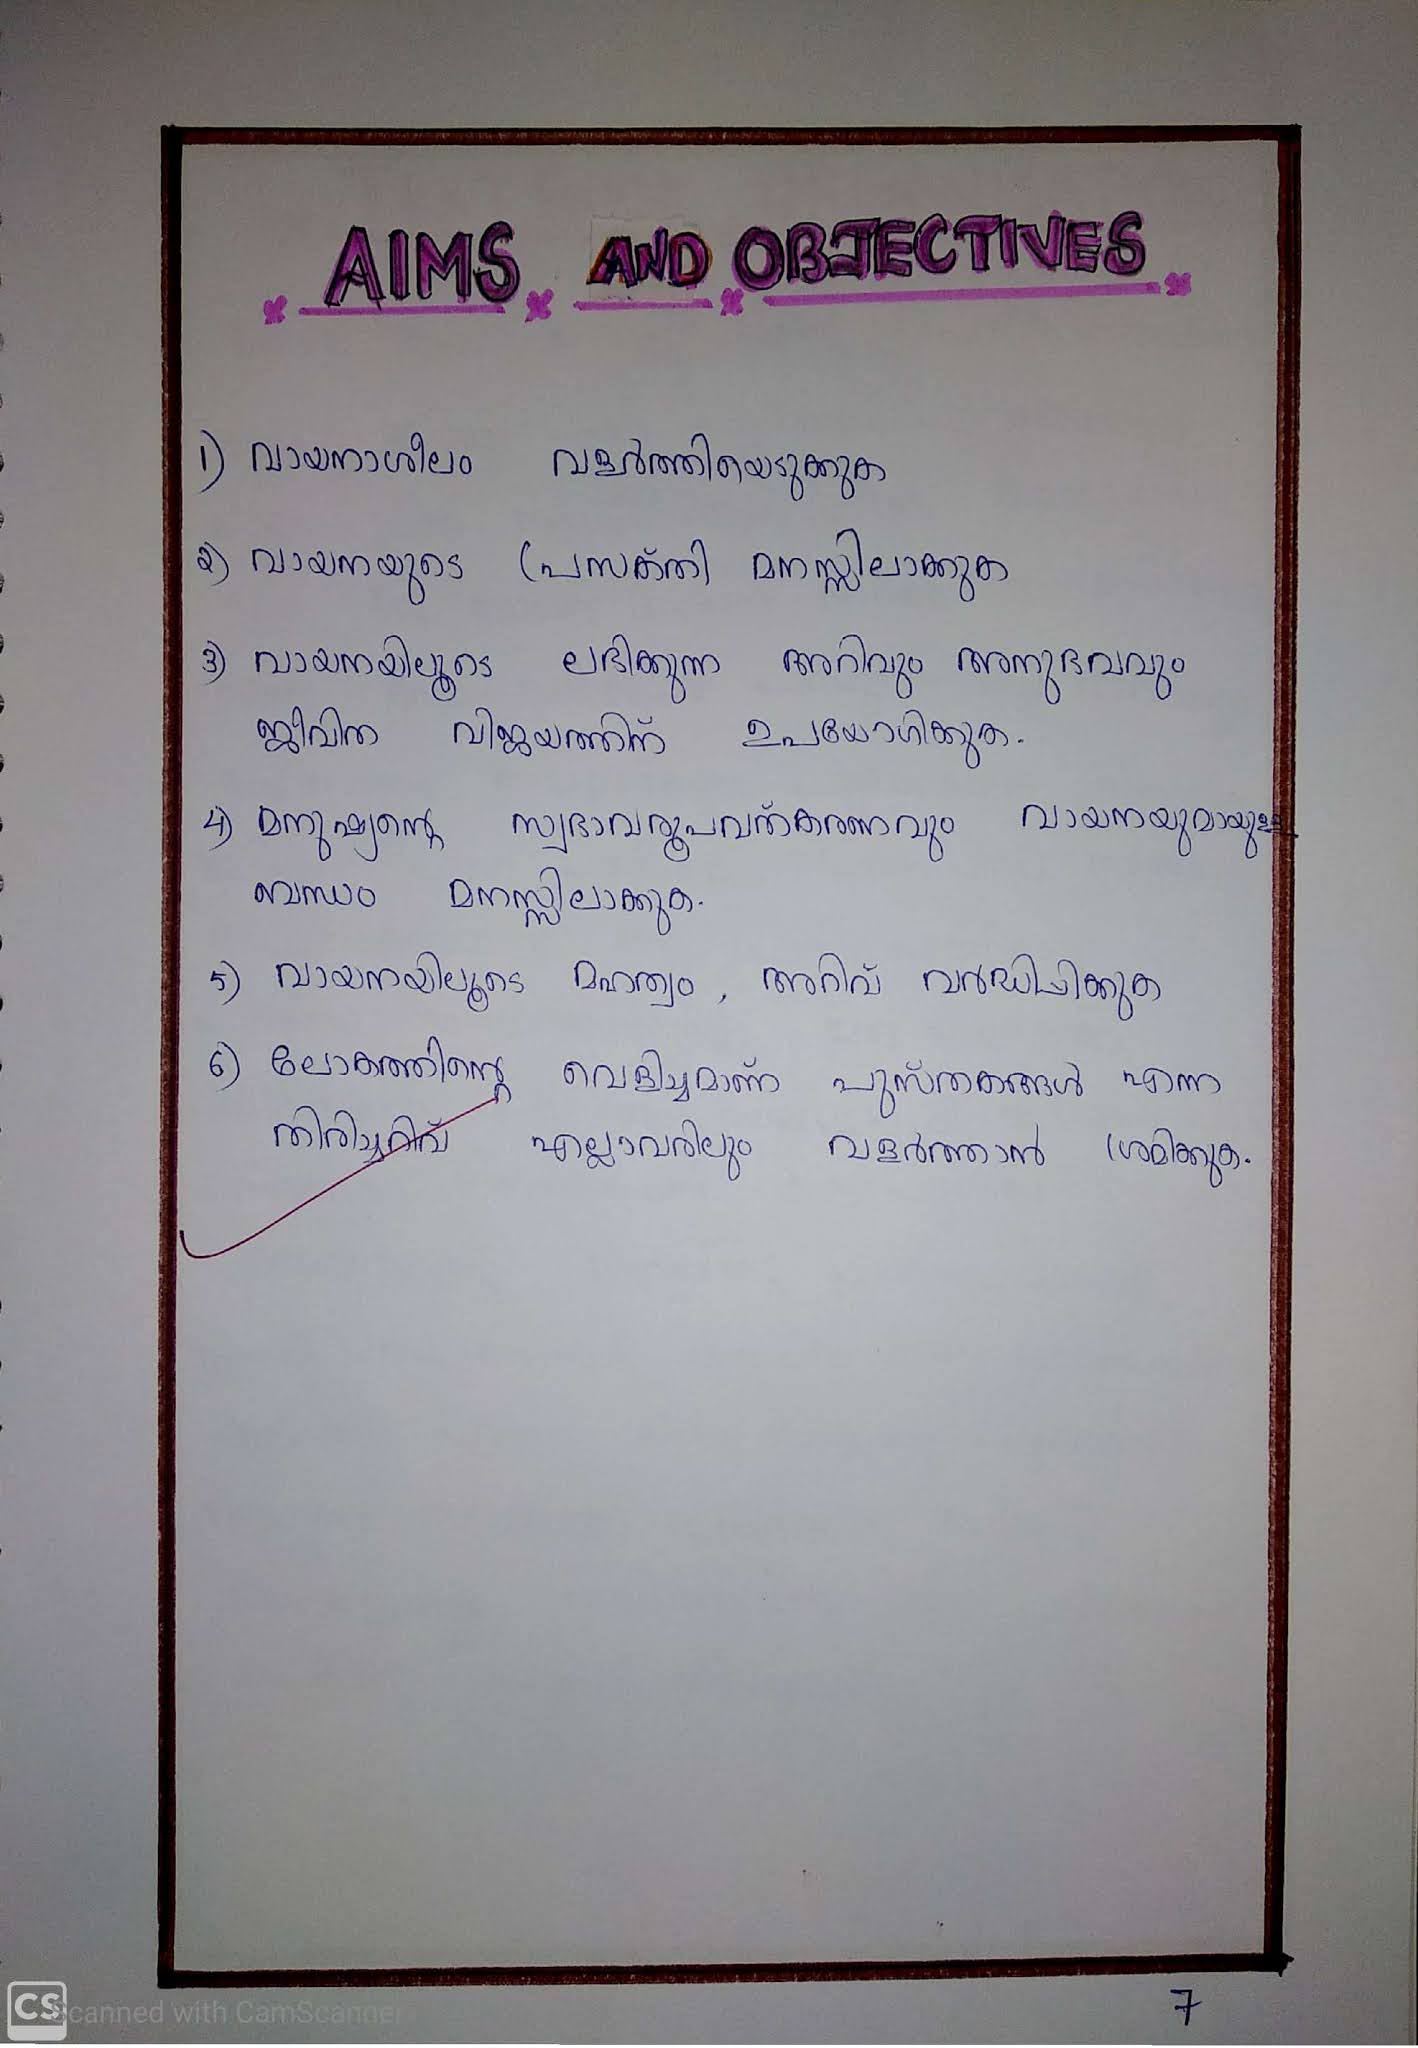 AIMS AND OBJECTIVES
1) വായനാശീലം വളർത്തിയെടുക്കുക
2) വായനയുടെ പ്രസക്തി മനസ്സിലാക്കുക
3) വായനയിലൂടെ ലഭിക്കുന്ന അറിവും അനുഭവവും
ജീവിത വിജയത്തിന് ഉപയോഗിക്കുക.
4) മനുഷ്യന്റെ സ്വഭാവരൂപവത്കരണവും വായനയുമായുള്ള
ബന്ധം മനസ്സിലാക്കുക.
5) വായനയിലൂടെ മഹത്വം, അറിവ് വർദ്ധിപ്പിക്കുക
6) ലോകത്തിന്റെ വെളിച്ചമാണ് പുസ്തകങ്ങൾ എന്ന
തിരിച്ചറിവ് എല്ലാവരിലും വളർത്താൻ ശ്രമിക്കുക.
7
CS Scanned with CamScanner